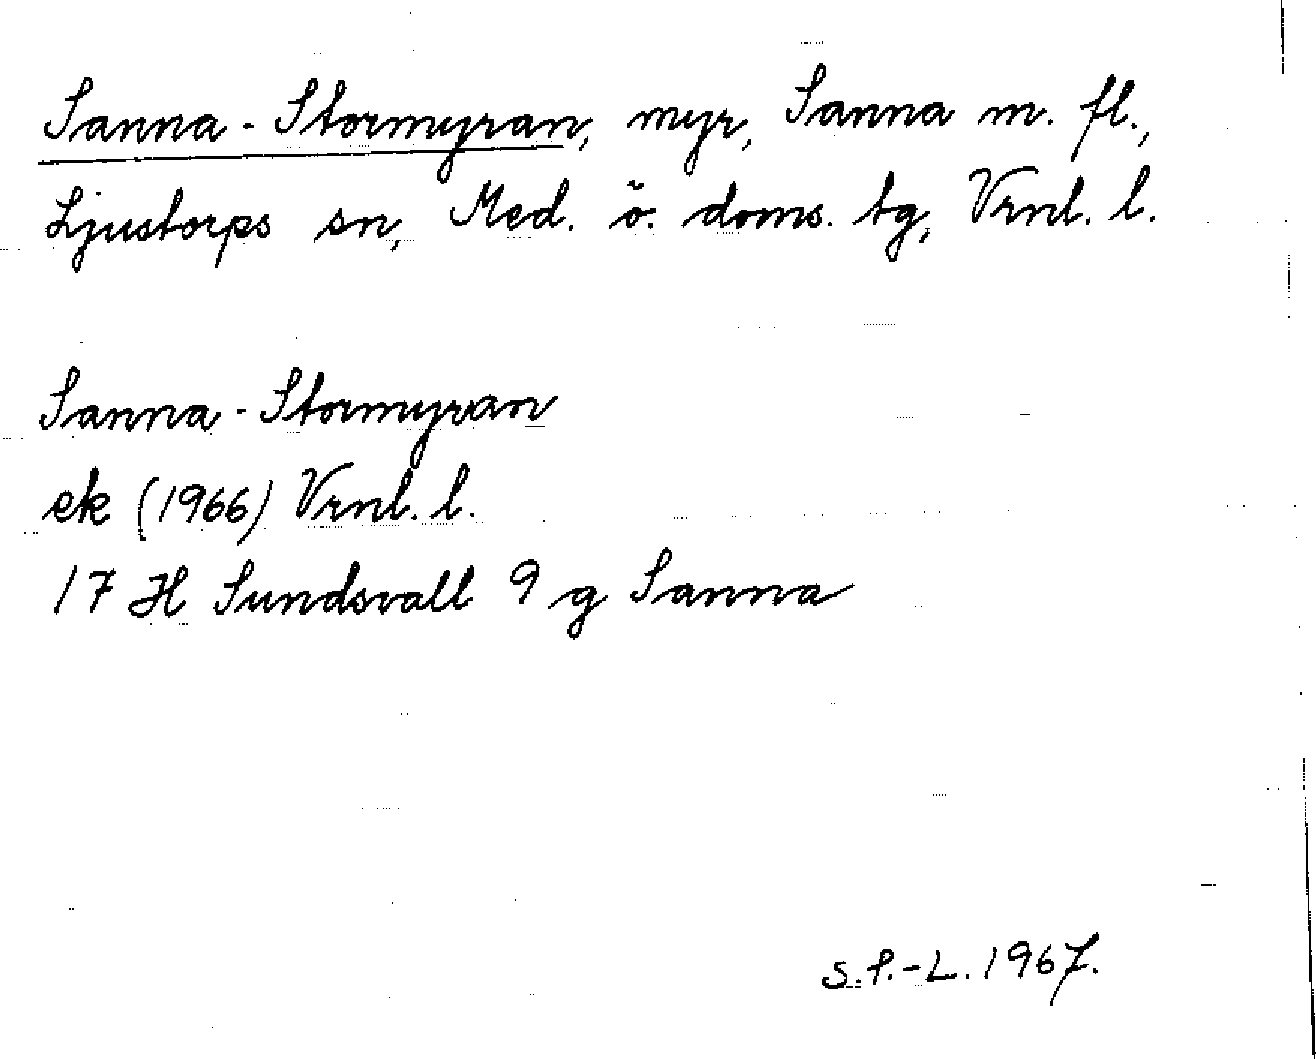 Sanna-Stormyran, myr, Sanna m. fl.,
Ljustorps sn, Med. ö. doms. tg, Vrnl. l.
Sanna-Stormyran
ek (1966) Vrnl. l.
17 H Sundsvall 9 g Sanna
S.P.-L. 1967.